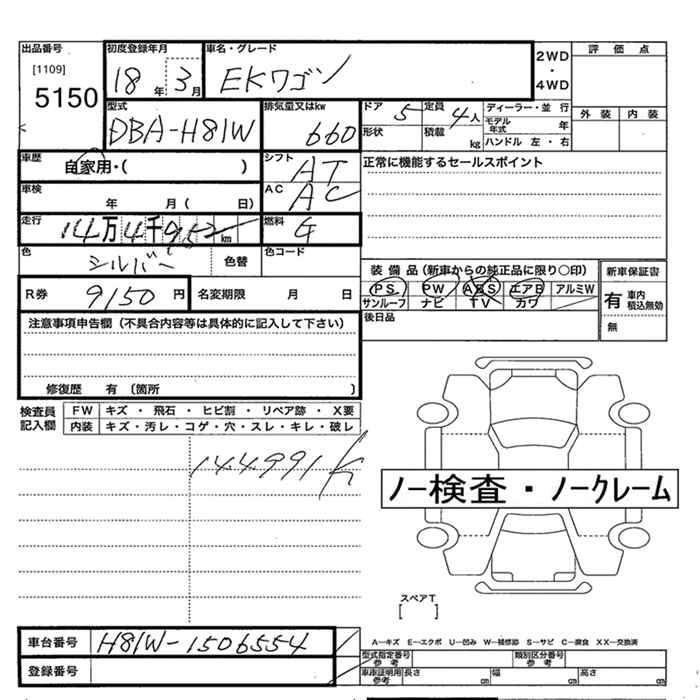 出品番号 初度登録年月 車名・グレード 2WD 評 価 点
[1109] 18 年 3 月 EKワゴン ・
5150 4WD
型式 排気量又はkw ドア 5 定員 4人 ディーラー・並 行 外 装 内 装
DBA-H81W 660 形状 積載 kg モデル年式 年
ハンドル 左 ・ 右
車歴 自家用・( ) シフト AT 正常に機能するセールスポイント
車検 年 月( 日) AC AC
走行 14万4千 km 燃料 G
色 シルバー 色替 色コード
装 備 品(新車からの純正品に限り○印) 新車保証書
R券 9150 円 名変期限 月 日 PS PW ABS エアB アルミW 有 車内 積込無効
サンルーフ ナビ TV カワ 無
注意事項申告欄(不具合内容等は具体的に記入して下さい) 後日品
修復歴 有 〔箇所 〕
検査員 FW キズ ・ 飛石 ・ ヒビ割 ・ リペア跡 ・ X要
記入欄 内装 キズ・汚レ・コゲ・穴・スレ・キレ・破レ
144991K
ノー検査・ノークレーム
スペアT
[ ]
車台番号 H81W-1506554 A―キズ E―エクボ U―凹み W―補修跡 S―サビ C―腐食 XX―交換済
登録番号 型式指定番号 参考 類別区分番号 参考
車庫証明用 参考 長さ cm 幅 cm 高さ cm